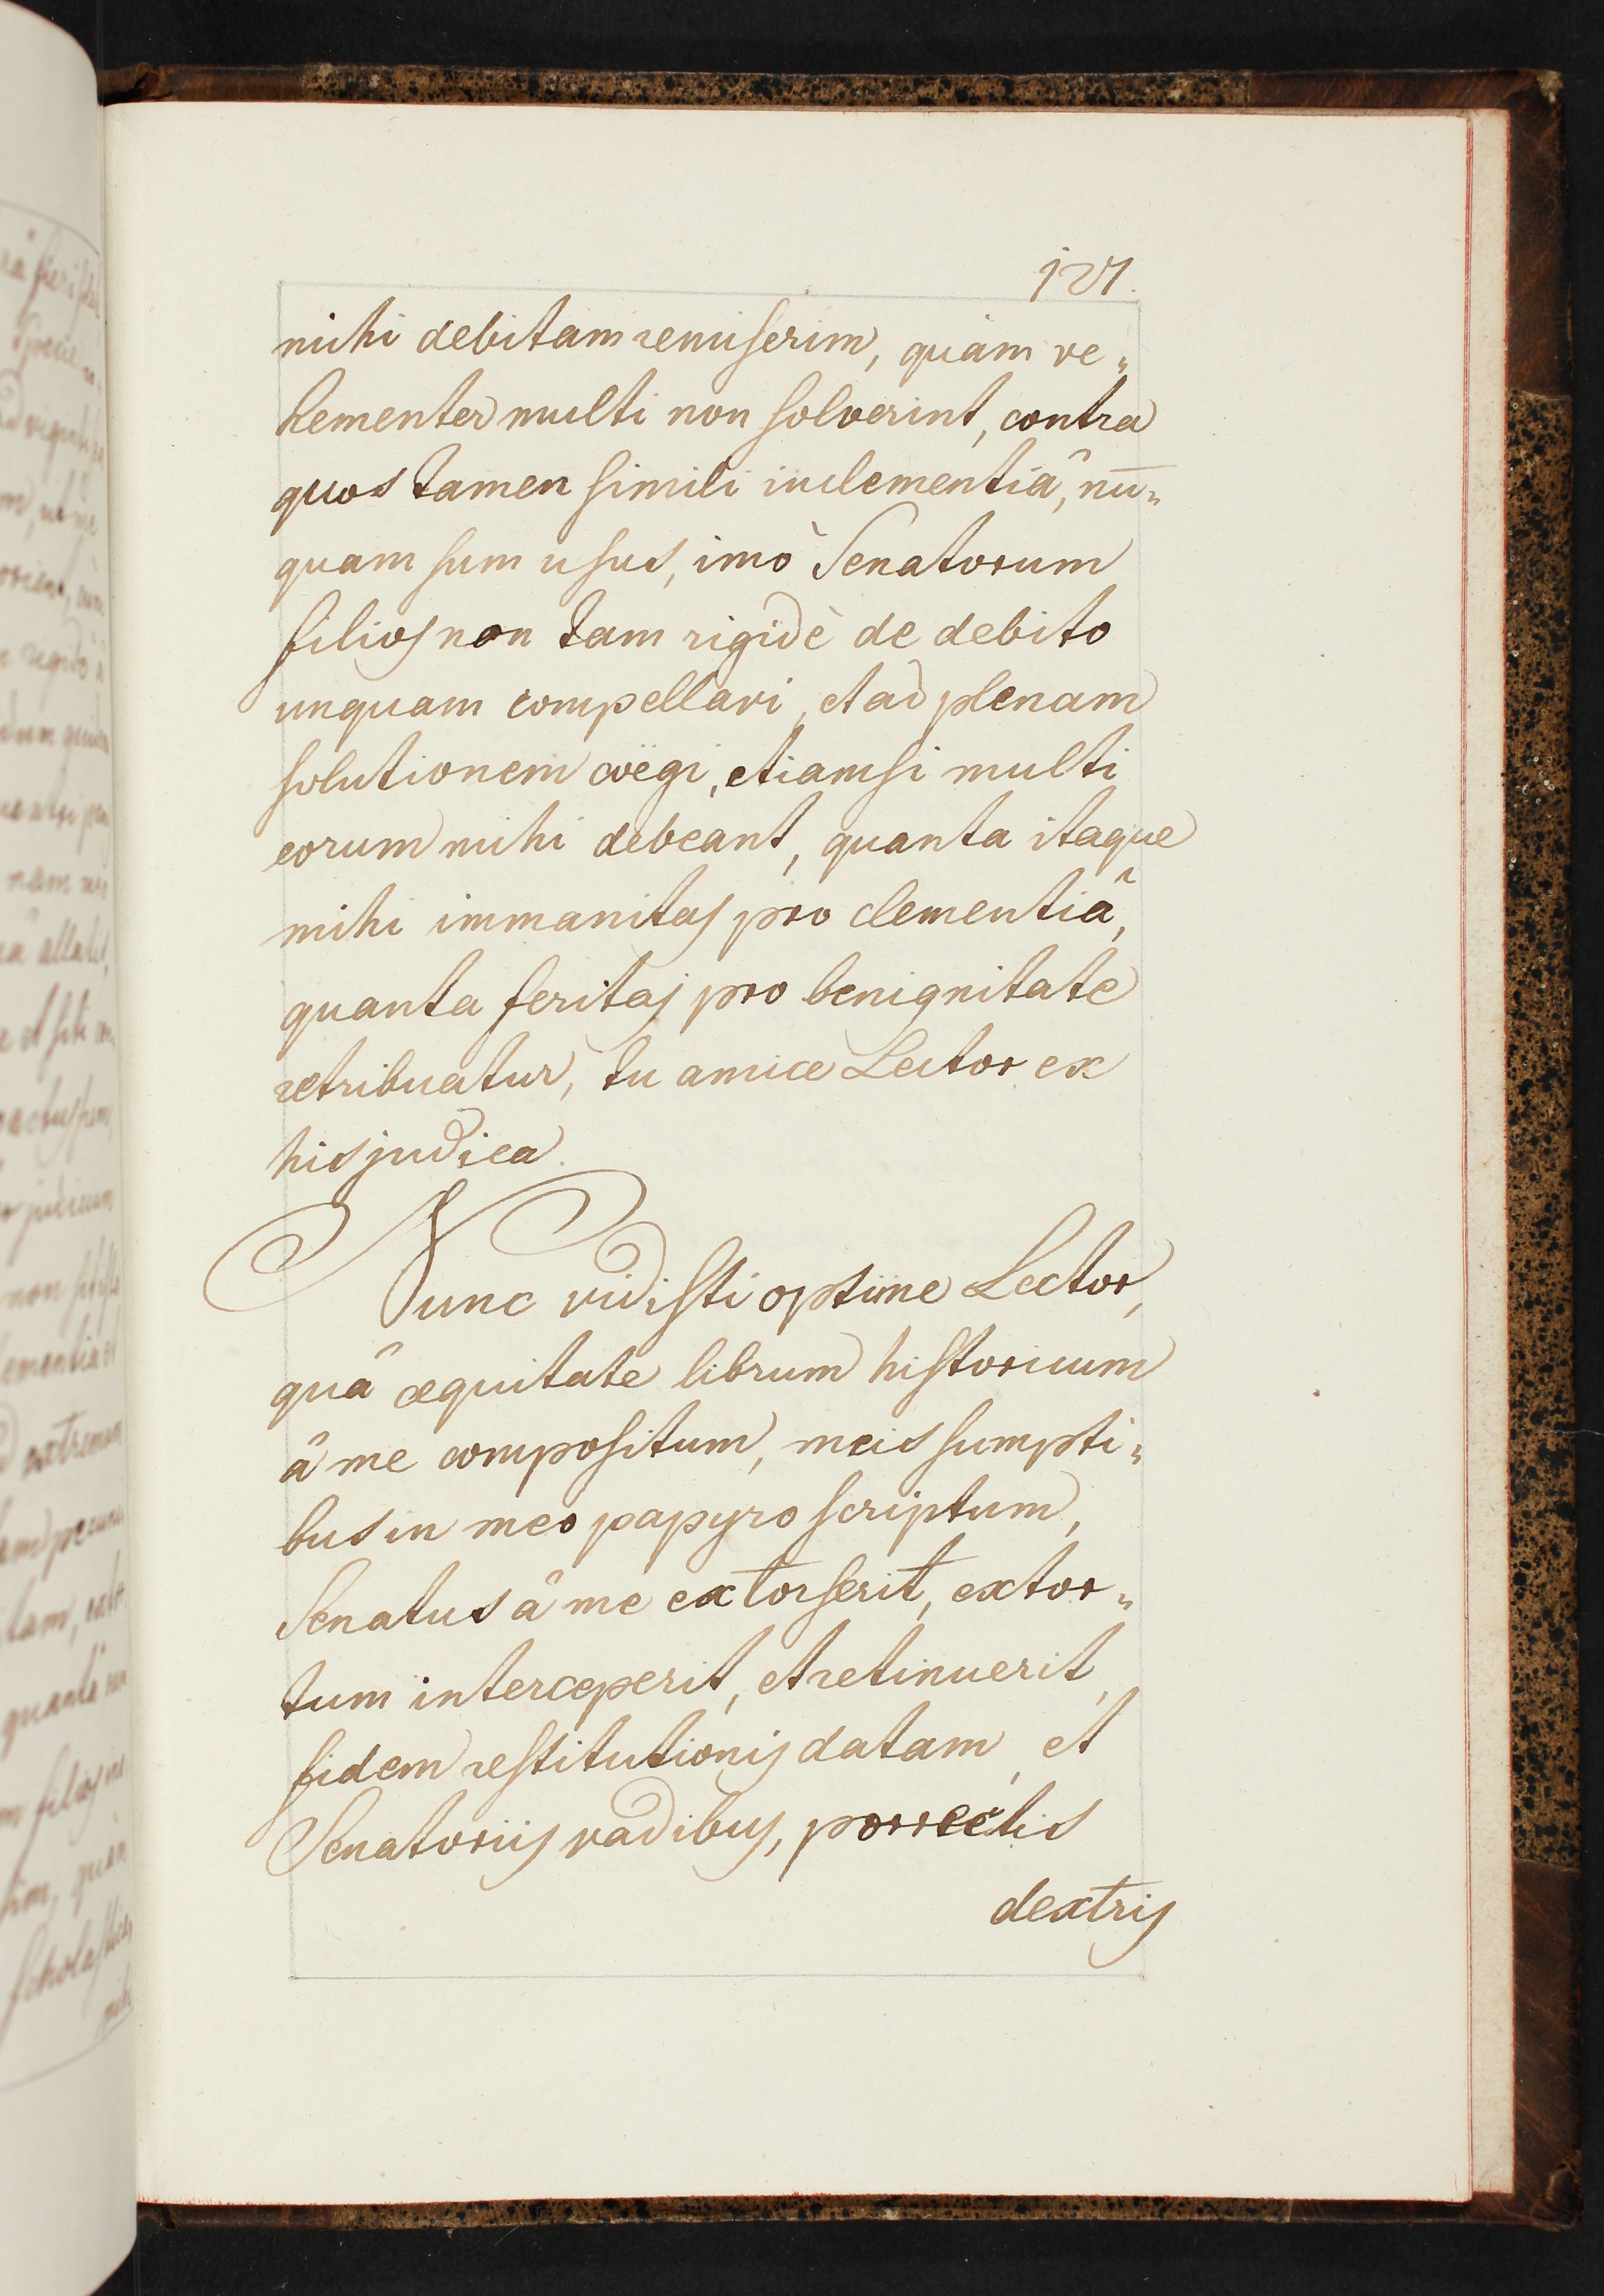 121.
mihi debitam remiserim, quàm ve„
hementer multi non solverint, contra
quos tamen simili inclementiâ, nū„
quam sum usus, imò Senatorum
filios non tam rigidè de debito
unquam compellavi, et ad plenam
solutionem coëgi, etiamsi multi
eorum mihi debeant, quanta itaque
mihi immanitas pro clementiâ,
quanta feritas pro benignitate
retribuatur, tu amice Lector ex
his judica.
Nunc vidisti optime Lector,
quâ æquitate librum historicum
â me compositum, meis sumpti„
bus in meo papyro scriptum,
Senatus â me extorserit, extor„
tum interceperit, et retinuerit,
fidem restitutionis datam, et
Senatoriis vadibus, porrectis
dextris